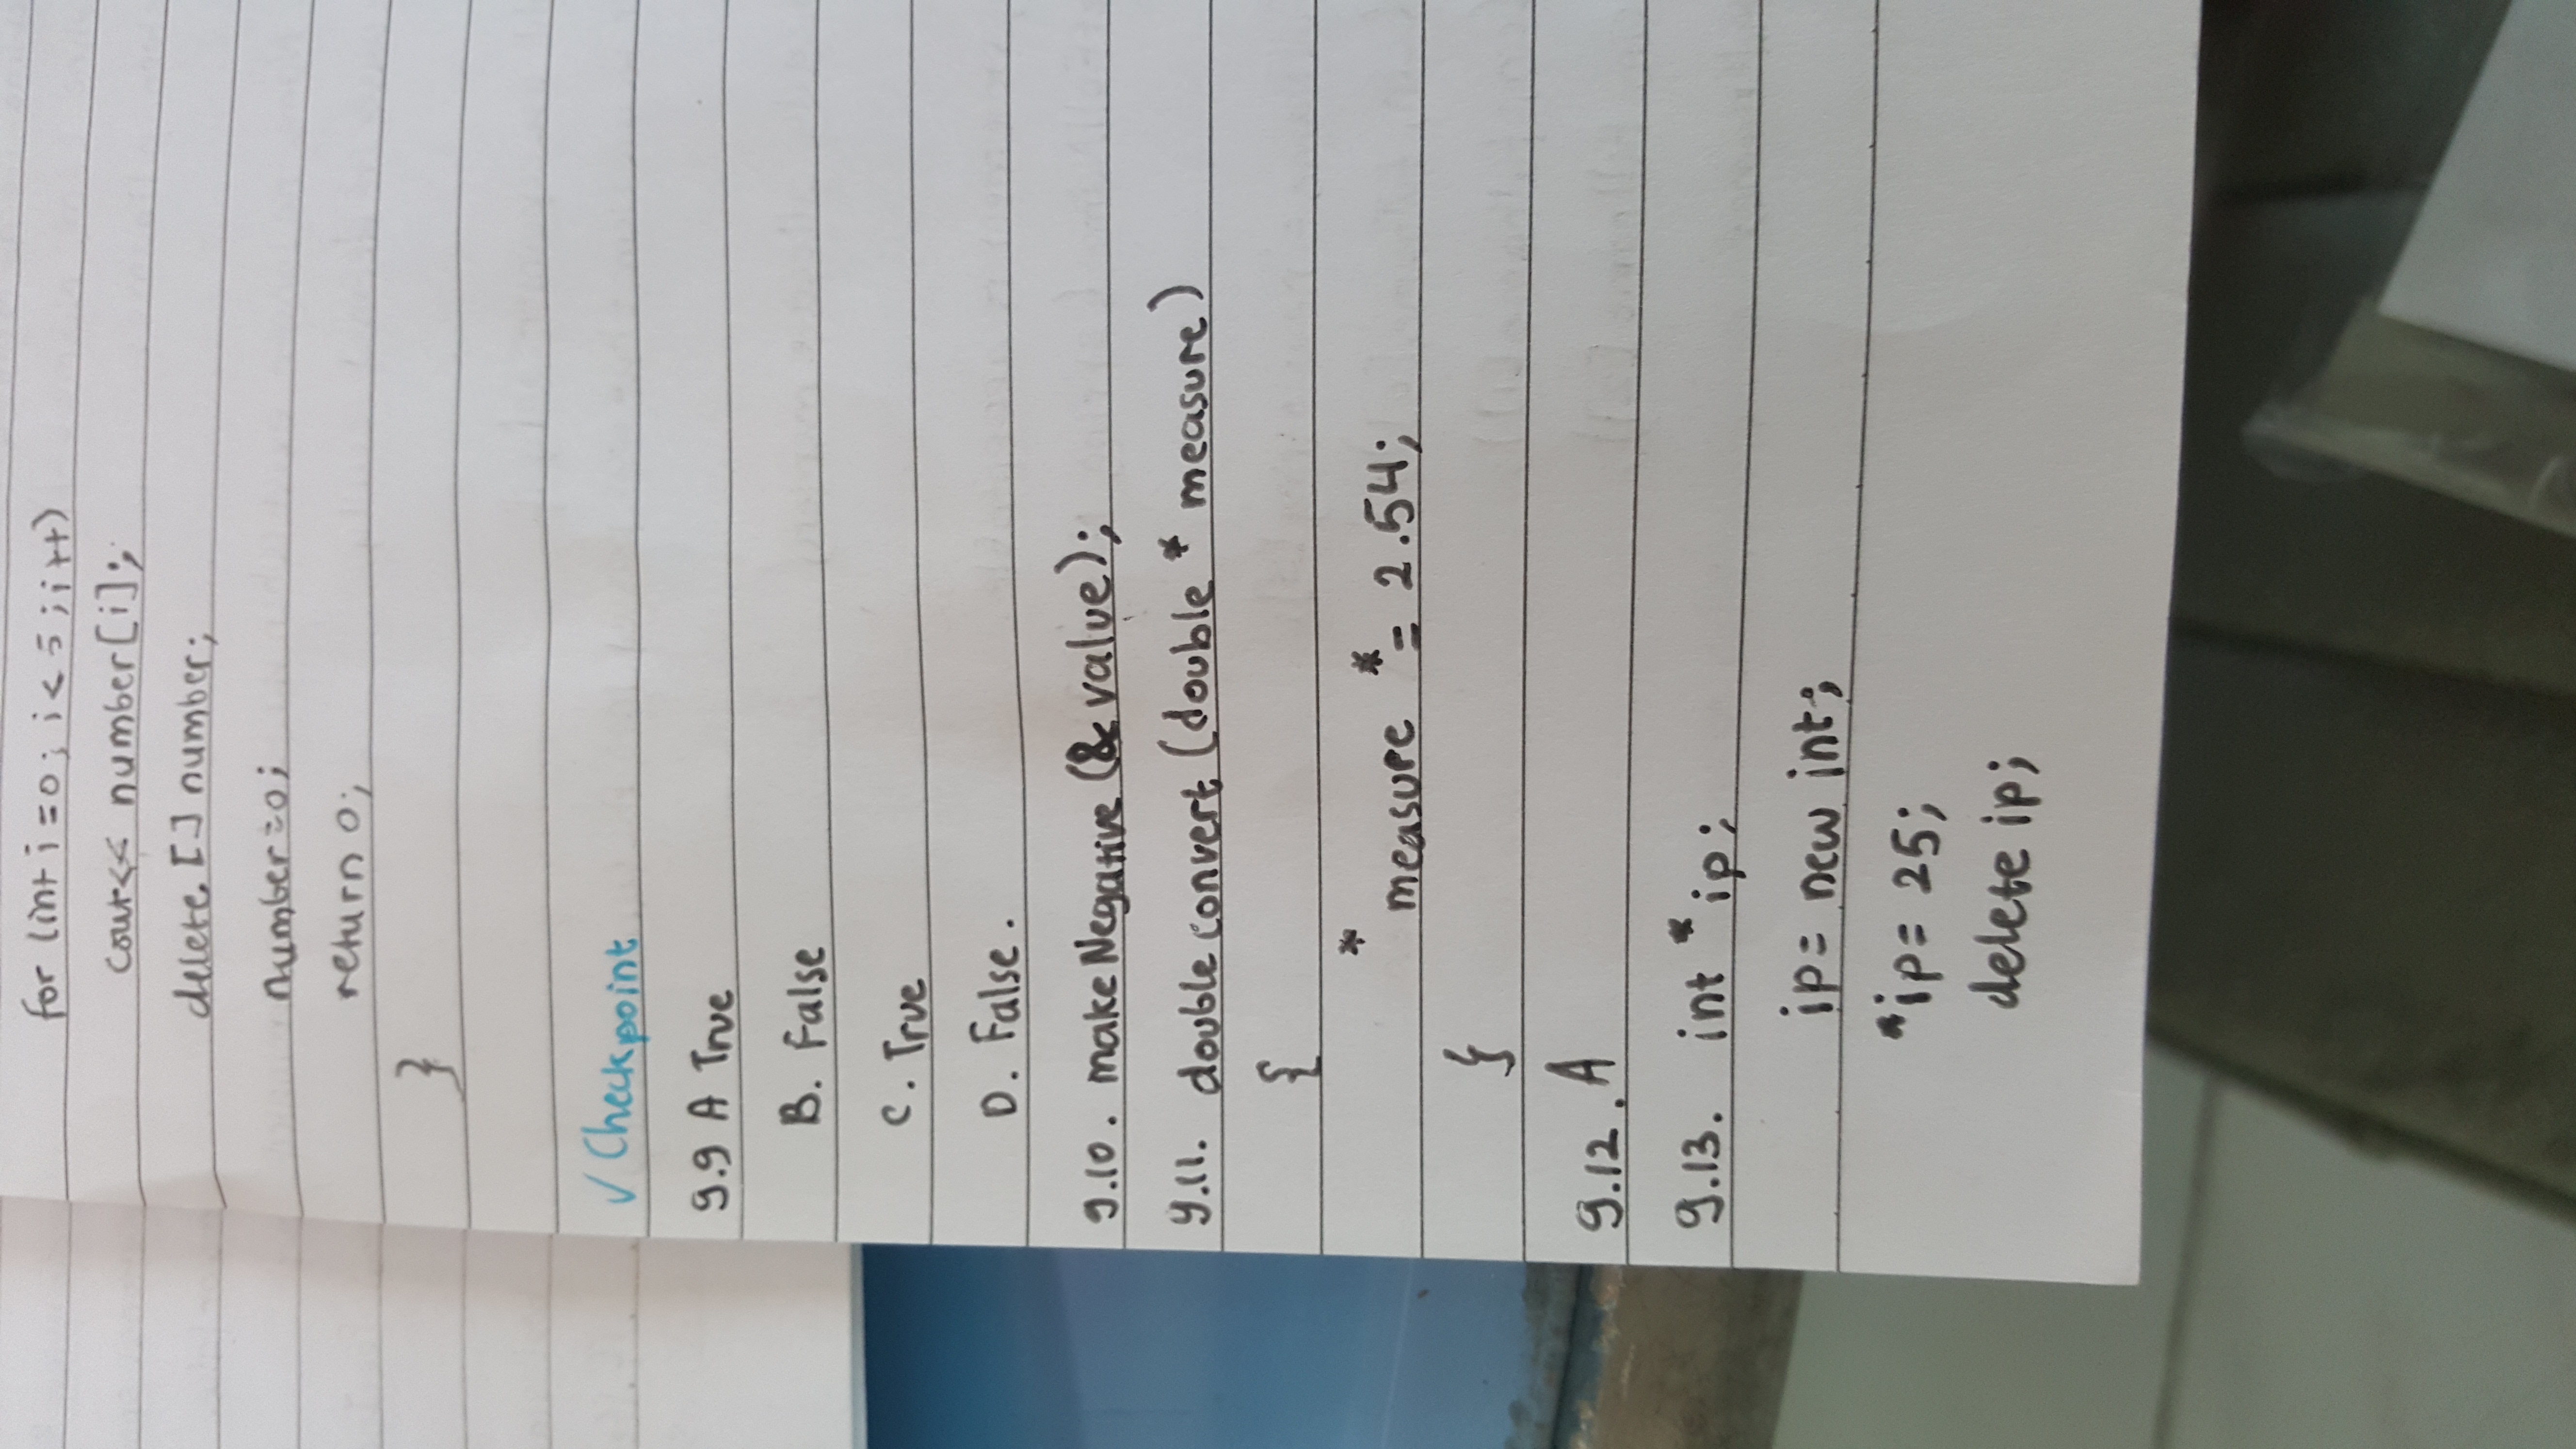 for (int i=0; i<5; i++)
cout<< number[i];
delete [] number;
number=0;
return 0;
}
✓ Checkpoint
9.9 A True
B. False
C. True
D. False.
9.10. makeNegative (& value);
9.11. double convert (double * measure)
{
* measure *= 2.54;
}
9.12. A
9.13. int *ip;
ip= new int;
*ip= 25;
delete ip;